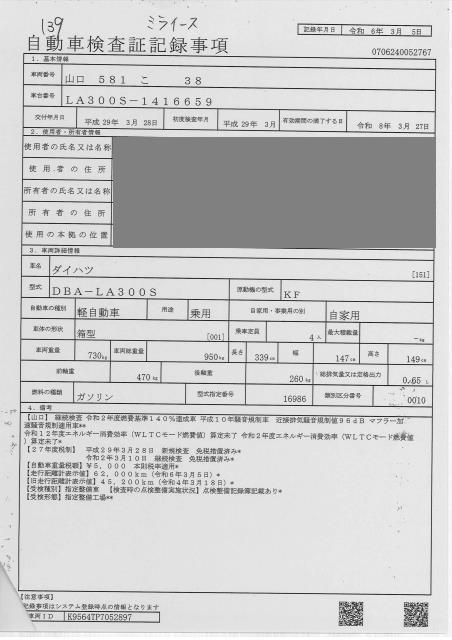 139 ミライース
自動車検査証記録事項
記録年月日 令和 6年 3月 5日
0706240052767
1．基本情報
車両番号 山口 581 こ 38
車台番号 LA300S-1416659
交付年月日 平成 29年 3月 28日 初度検査年月 平成 29年 3月 有効期間の満了する日 令和 8年 3月 27日
2．使用者・所有者情報
使用者の氏名又は名称
使用者の住所
所有者の氏名又は名称
所有者の住所
使用の本拠の位置
3．車両詳細情報
車名 ダイハツ [151]
型式 DBA-LA300S 原動機の型式 KF
自動車の種別 軽自動車 用途 乗用 自家用・事業用の別 自家用
車体の形状 箱型 [001] 乗車定員 4人 最大積載量 －kg
車両重量 730kg 車両総重量 950kg 長さ 339cm 幅 147cm 高さ 149cm
前軸重 470kg 後軸重 260kg 総排気量又は定格出力 0.65 L
燃料の種類 ガソリン 型式指定番号 16986 類別区分番号 0010
4．備考
【山口】 継続検査 令和2年度燃費基準140％達成車 平成10年騒音規制車 近接排気騒音規制値96dB マフラー加
速騒音規制適用車**
令和12年度エネルギー消費効率（WLTCモード燃費値）算定未了 令和2年度エネルギー消費効率（WLTCモード燃費値
）算定未了*
【27年度税制】 平成29年3月28日 新規検査 免税措置済み*
令和2年3月10日 継続検査 免税措置済み*
【自動車重量税額】￥5,000 本則税率適用*
【走行距離計表示値】62,000km（令和6年3月5日）*
【旧走行距離計表示値】45,200km（令和4年3月18日）*
【受検種別】指定整備車 【検査時の点検整備実施状況】点検整備記録簿記載あり*
【受検形態】指定整備工場**
【注意事項】
記録事項はシステム登録時点の情報となります
車両ID K9564TP7052897